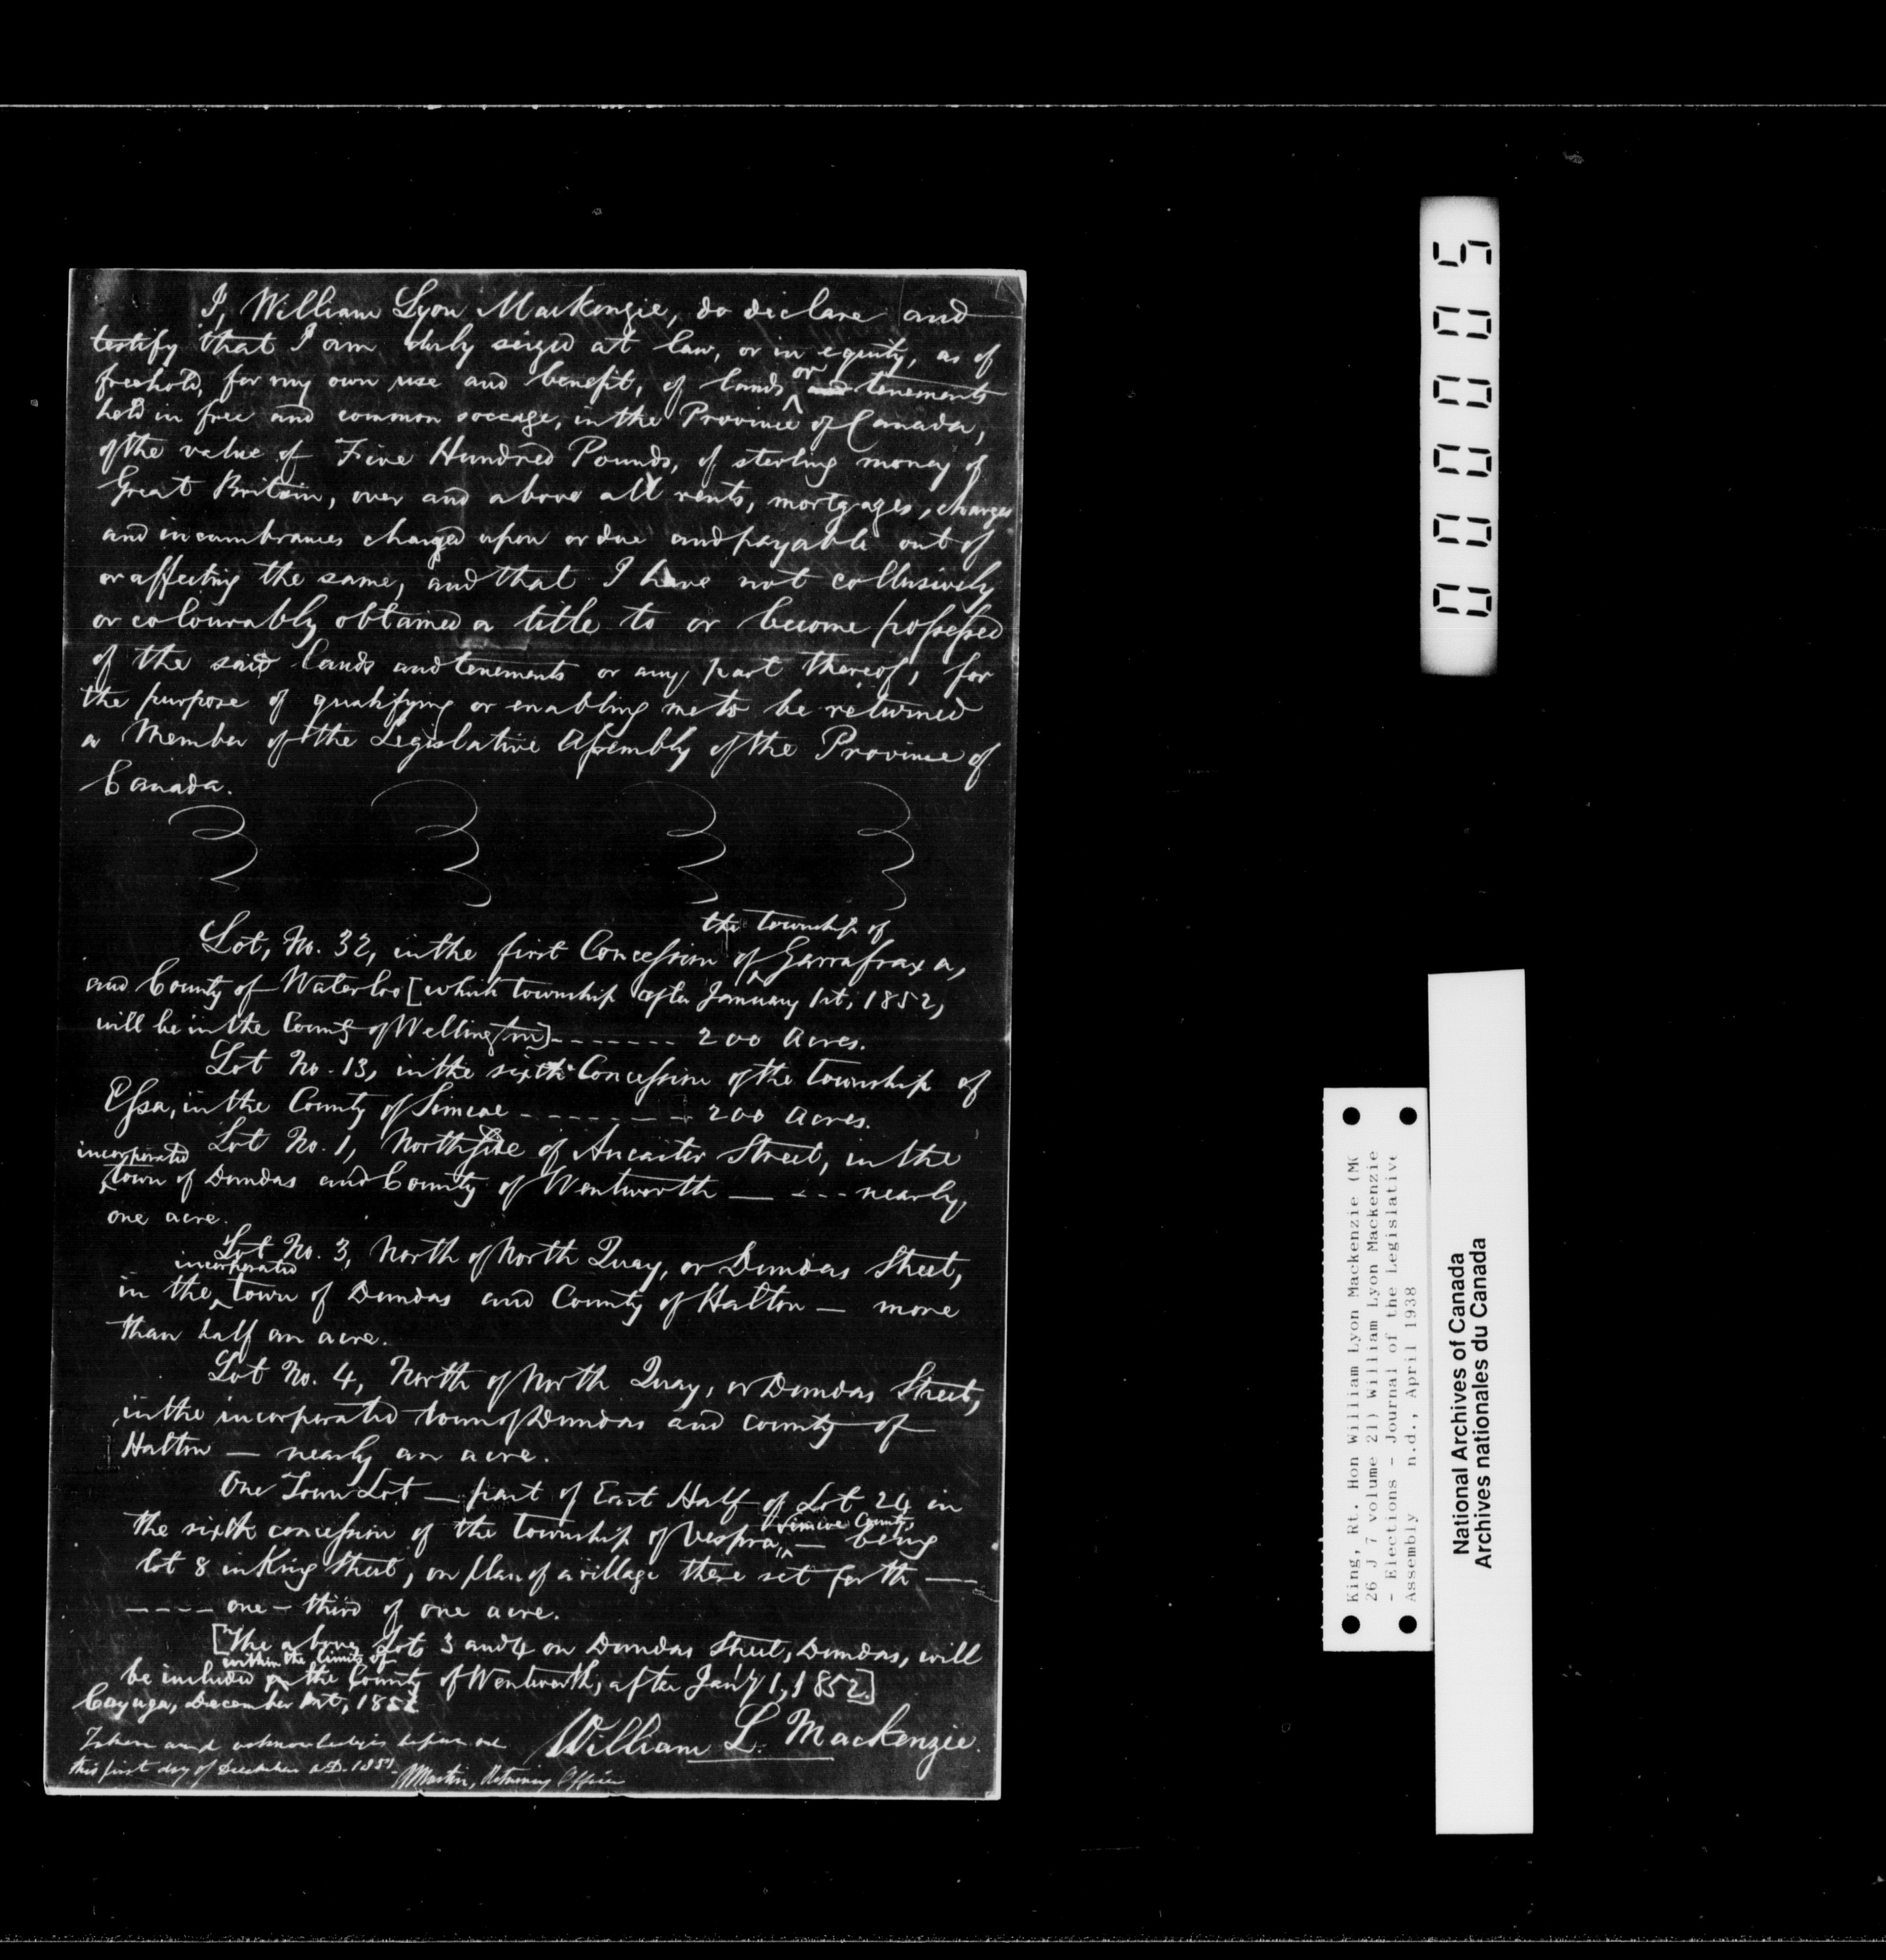 I, William Lyon Mackenzie, do declare and
testify that I am duly seized at law, or in equity, as of
freehold, for my own use and benefit, of lands or and tenements
held in free and common soccage, in the Province of Canada,
of the value of Five Hundred Pounds, of sterling money of
Great Britain, over and above all rents, mortgages, charges
and incumbrances charged upon or due and payable out of
or affecting the same, and that I have not collusively
or colourably obtained a title to or become possessed
of the said lands and tenements or any part thereof, for
the purpose of qualifying or enabling me to be returned
a Member of the Legislative Assembly of the Province of
Canada.
the township of
Lot, No. 32, in the first Concession of Garrafraxa,
and County of Waterloo [which township after January 1st, 1852,
will be in the County of Wellington] ------- 200 Acres.
Lot No. 13, in the sixth Concession of the township of
Essa, in the County of Simcoe -------- 200 acres.
Lot No. 1, North side of Ancaster Street, in the
incorporated
town of Dundas and County of Wentworth — --- nearly
one acre.
Lot No. 3, North of North Quay, or Dundas Street,
incorporated
in the town of Dundas and County of Halton — more
than half an acre.
Lot No. 4, North of North Quay, or Dundas Street,
in the incorporated town of Dundas and county of
Halton — nearly an acre.
One Town Lot — part of East Half of Lot 24 in
the sixth concession of the township of Vespra, Simcoe County, — being
lot 8 in King Street, on plan of a village there set forth —
---- one-third of one acre.
[The above Lots 3 and 4 on Dundas Street, Dundas, will
within the limits of
be included the County of Wentworth, after Jan'y 1, 1852.]
Cayuga, December 1st, 1851
William L. Mackenzie.
Taken and acknowledged before me
this first day of December A.D. 1851.
Martin, Returning Officer
000005
King, Rt. Hon William Lyon Mackenzie (MG
26 J 7 volume 21) William Lyon Mackenzie
- Elections - Journal of the Legislative
Assembly n.d., April 1938
National Archives of Canada
Archives nationales du Canada